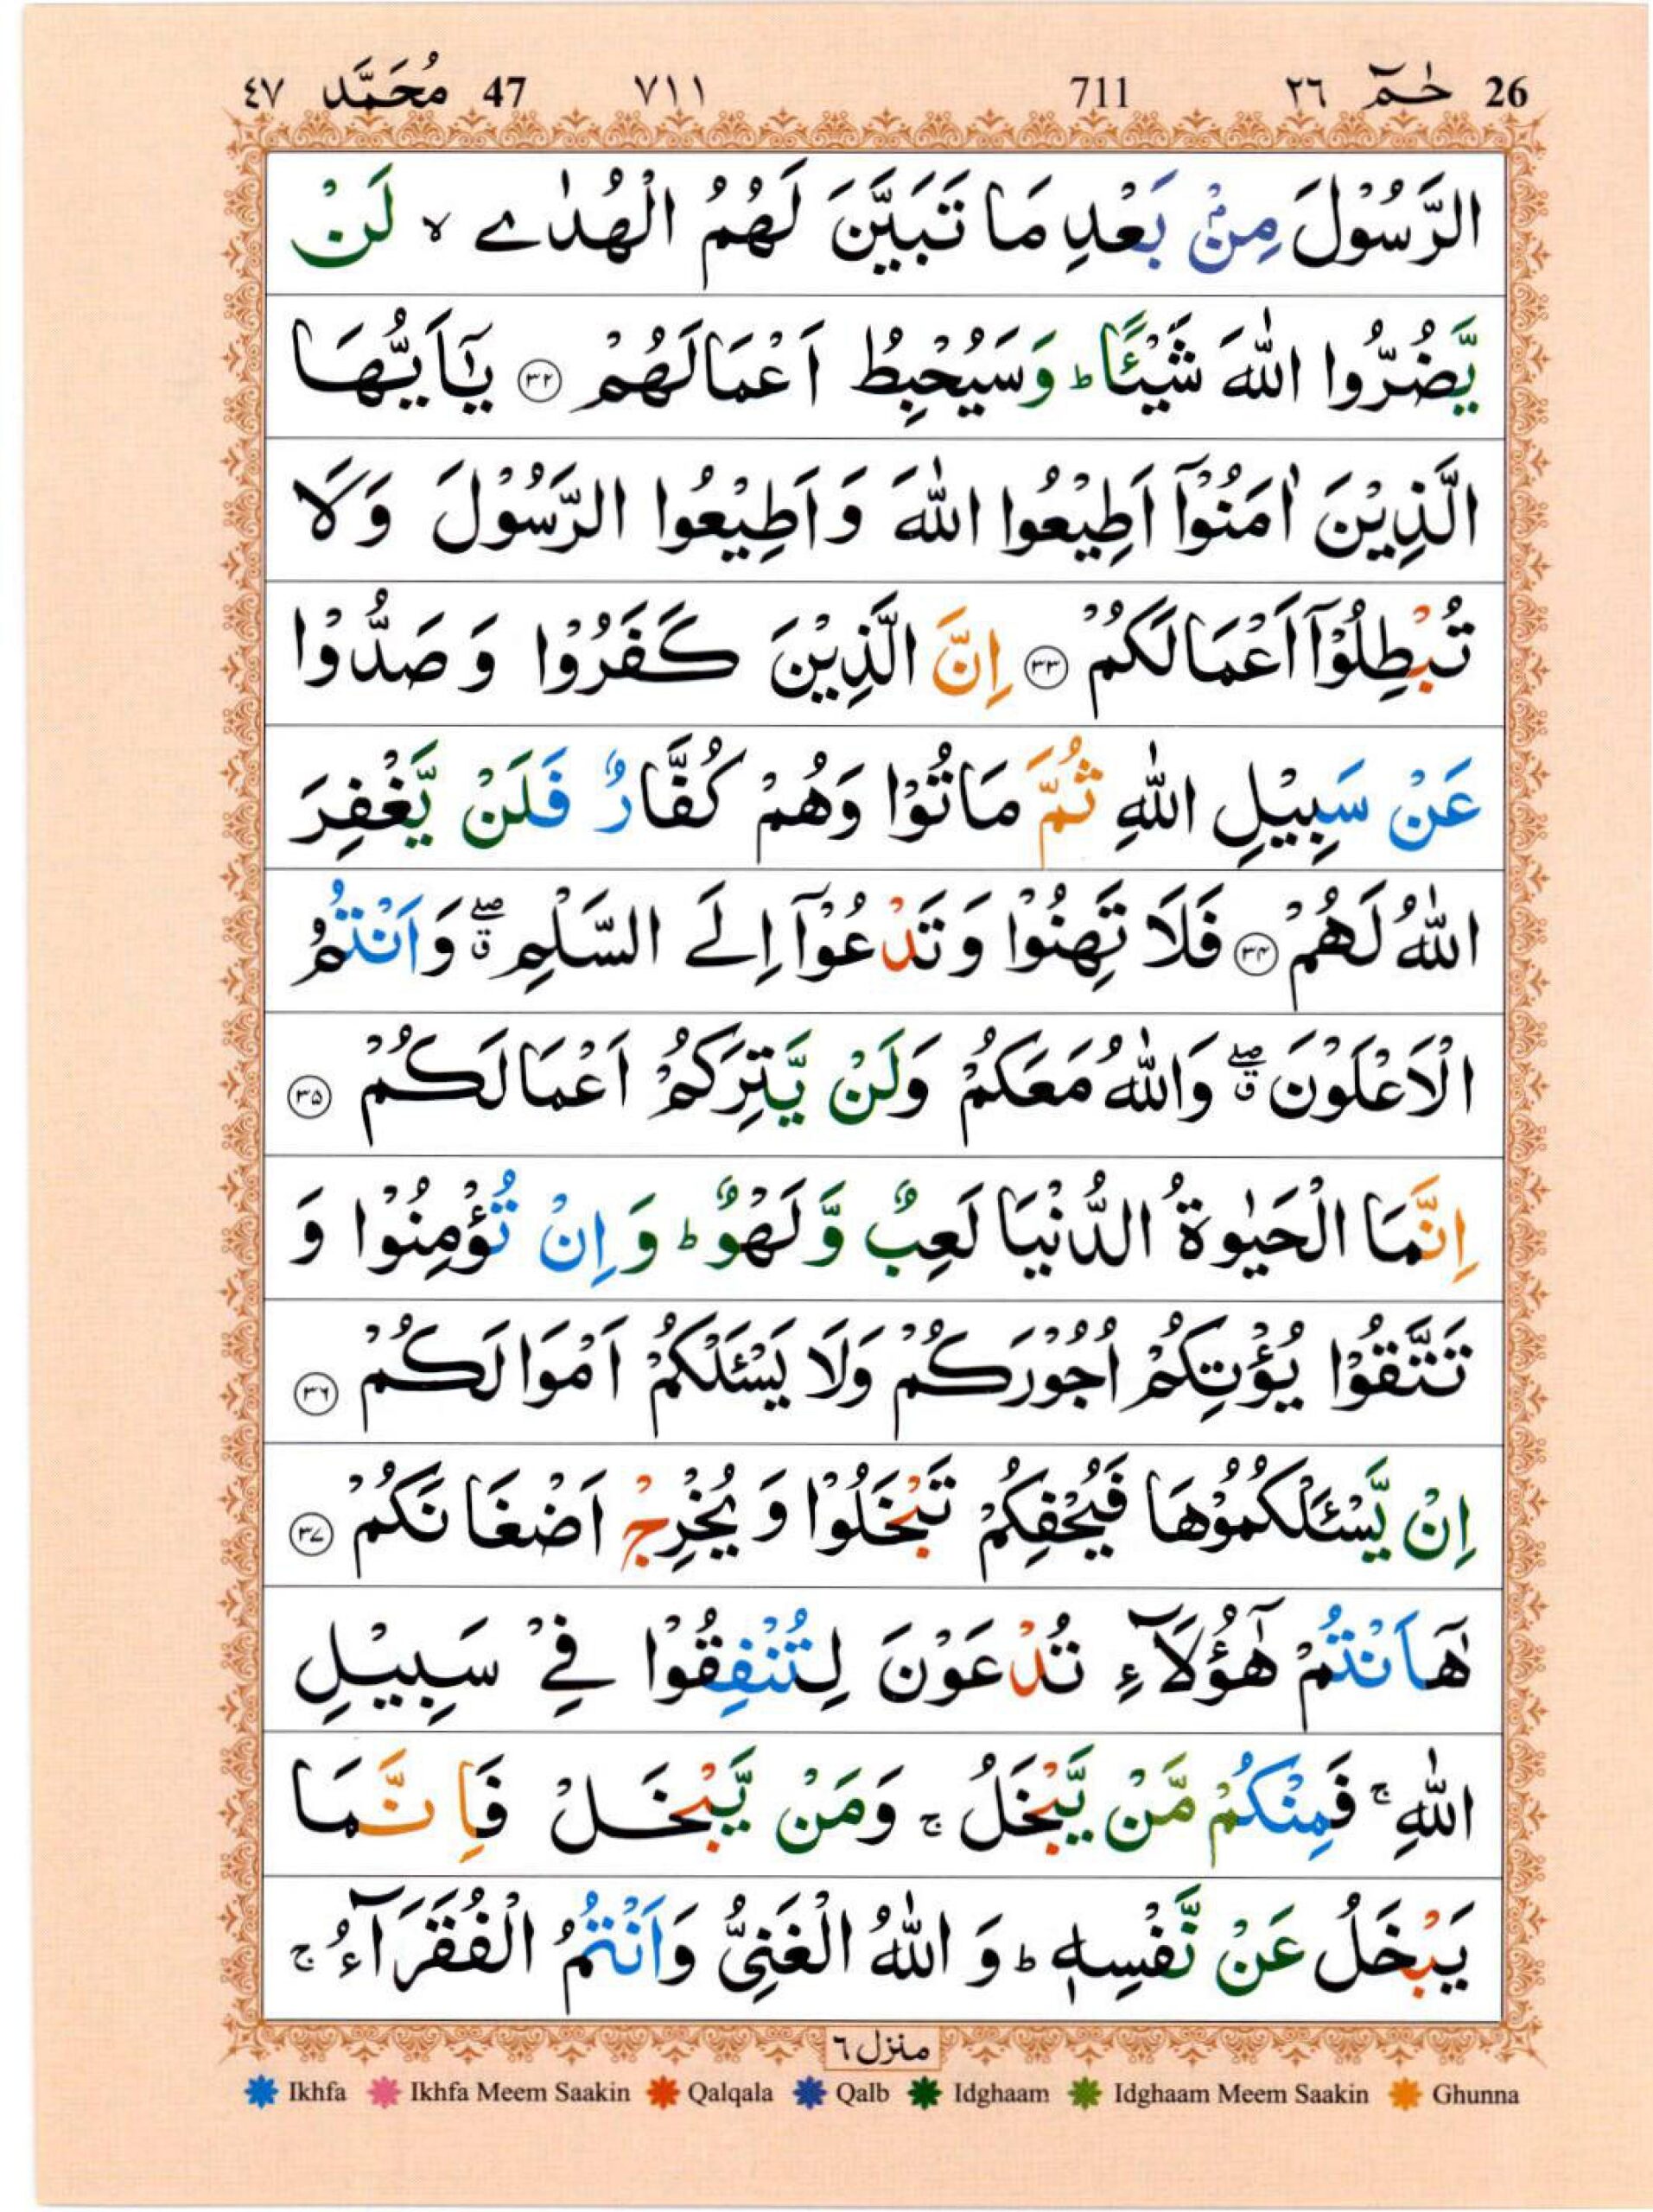 26 حٰمٓ ٢٦ 711 ٧١١ 47 مُحَمَّد ٤٧
الرَّسُوْلَ مِنْۢ بَعْدِ مَا تَبَيَّنَ لَهُمُ الْهُدٰے ۙ لَنْ
يَّضُرُّوا اللّٰهَ شَيْـًٔا ؕ وَسَيُحْبِطُ اَعْمَالَهُمْ ﴿۳۲﴾ يٰۤاَيُّهَا
الَّذِيْنَ اٰمَنُوْۤا اَطِيْعُوا اللّٰهَ وَ اَطِيْعُوا الرَّسُوْلَ وَلَا
تُبْطِلُوْۤا اَعْمَالَكُمْ ﴿۳۳﴾ اِنَّ الَّذِيْنَ كَفَرُوْا وَ صَدُّوْا
عَنْ سَبِيْلِ اللّٰهِ ثُمَّ مَاتُوْا وَهُمْ كُفَّارٌ فَلَنْ يَّغْفِرَ
اللّٰهُ لَهُمْ ﴿۳۴﴾ فَلَا تَهِنُوْا وَ تَدْعُوْۤا اِلَے السَّلْمِ ۖق وَاَنْتُمُ
الْاَعْلَوْنَ ۖق وَاللّٰهُ مَعَكُمْ وَلَنْ يَّتِرَكُمْ اَعْمَالَكُمْ ﴿۳۵﴾
اِنَّمَا الْحَيٰوةُ الدُّنْيَا لَعِبٌ وَّ لَهْوٌ ؕ وَ اِنْ تُؤْمِنُوْا وَ
تَتَّقُوْا يُؤْتِكُمْ اُجُوْرَكُمْ وَلَا يَسْـَٔلْكُمْ اَمْوَالَكُمْ ﴿۳۶﴾
اِنْ يَّسْـَٔلْكُمُوْهَا فَيُحْفِكُمْ تَبْخَلُوْا وَ يُخْرِجْ اَضْغَانَكُمْ ﴿۳۷﴾
هٰۤاَنْتُمْ هٰۤؤُلَآءِ تُدْعَوْنَ لِتُنْفِقُوْا فِيْ سَبِيْلِ
اللّٰهِ ۚ فَمِنْكُمْ مَّنْ يَّبْخَلُ ۚ وَمَنْ يَّبْخَلْ فَاِنَّمَا
يَبْخَلُ عَنْ نَّفْسِهٖ ؕ وَ اللّٰهُ الْغَنِيُّ وَاَنْتُمُ الْفُقَرَآءُ ۚ
منزل ٦
Ikhfa Ikhfa Meem Saakin Qalqala Qalb Idghaam Idghaam Meem Saakin Ghunna